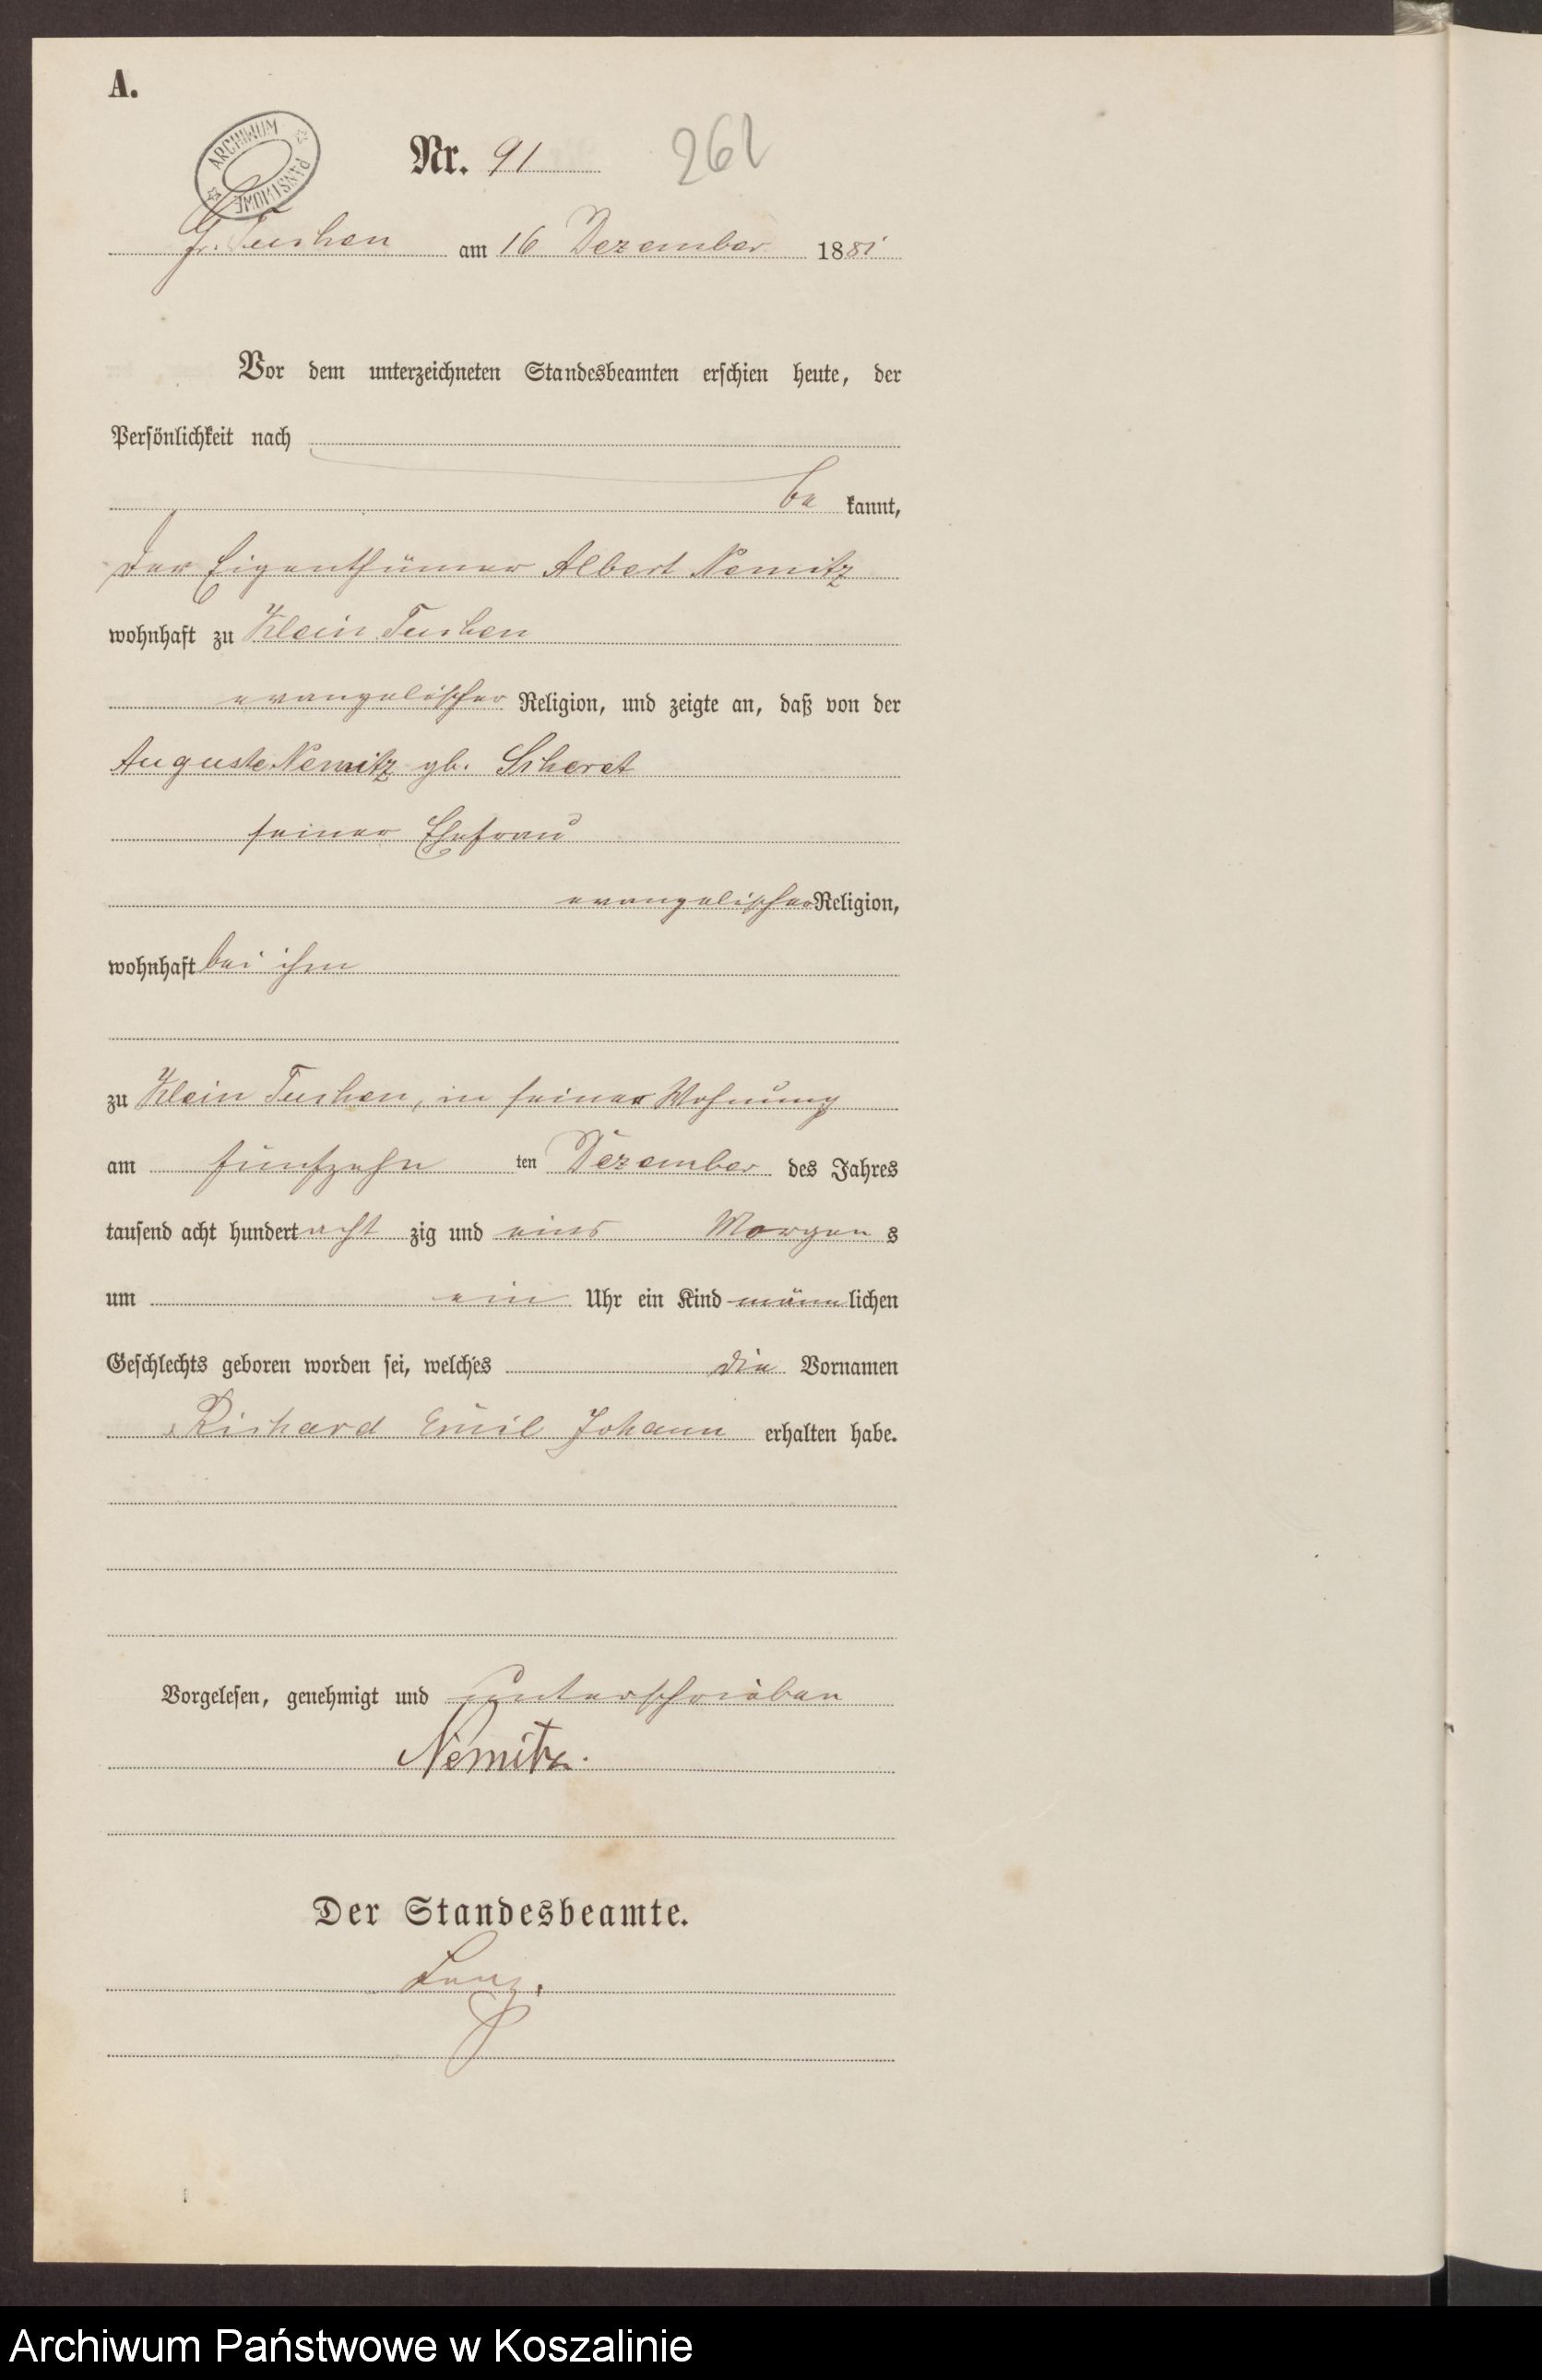 A.
ARCHIWUM PAŃSTWOWE
Nr. 91 261
Gr. Tuchen am 16 Dezember 1881
Vor dem unterzeichneten Standesbeamten erschien heute, der
Persönlichkeit nach
be kannt,
der Eigenthümer Albert Nemitz
wohnhaft zu Klein Tuchen
evangelischer Religion, und zeigte an, daß von der
Auguste Nemitz gb.
seiner Ehefrau
evangelischer Religion,
wohnhaft bei ihm
zu Klein Tuchen, in seiner Wohnung
am fünfzehn ten Dezember des Jahres
tausend acht hundert acht zig und eins Morgen s
um ein Uhr ein Kind männ lichen
Geschlechts geboren worden sei, welches die Vornamen
Richard Emil Johann erhalten habe.
Vorgelesen, genehmigt und unterschrieben
Nemitz.
Der Standesbeamte.
Archiwum Państwowe w Koszalinie